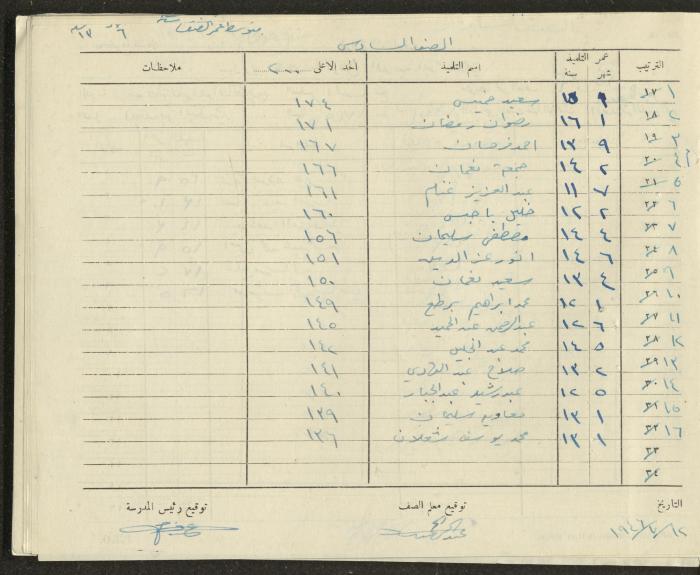 متوسط عمر الصف سنة ١٣ شهر ٦
الصف السادس
الترتيب عمر التلميذ شهر سنة اسم التلميذ الحد الاعلى ٢٠٠ ملاحظات
١ ١٧ ١٥ سعيد خميس ١٧٤
٢ ١٨ ١ ١٦ رضوان رمضان ١٧١
٣ ١٩ ٩ ١٣ احمد فرحان ١٦٧
٤ ٢٠ ٢ ١٤ جمعة نعمان ١٦٦
٥ ٢١ ٧ ١١ عبد العزيز غنام ١٦١
٦ ٢٢ ٢ ١٢ خليل ١٦٠
٧ ٢٣ ٤ ١٤ مصطفى سليمان ١٥٦
٨ ٢٤ ٦ ١٤ انور عز الدين ١٥١
٩ ٢٥ ٤ ١٣ سعيد نعمان ١٥٠
١٠ ٢٦ ١ ١٢ محمد ابراهيم ١٤٩
١١ ٢٧ ٦ ١٢ عبد الرحمن عبد الحميد ١٤٥
١٢ ٢٨ ٥ ١٤ محمد عبد الجليل ١٤٢
١٣ ٢٩ ٢ ١٣ صلاح عبد الهادي ١٤١
١٤ ٣٠ ٥ ١٢ عبد رشيد عبد الجبار ١٤٠
١٥ ٣١ ١ ١٣ معاوية سليمان ١٣٩
١٦ ٣٢ ١ ١٣ محمد يوسف شعلان ١٣٦
٣٣
٣٤
التاريخ توقيع معلم الصف توقيع رئيس المدرسة